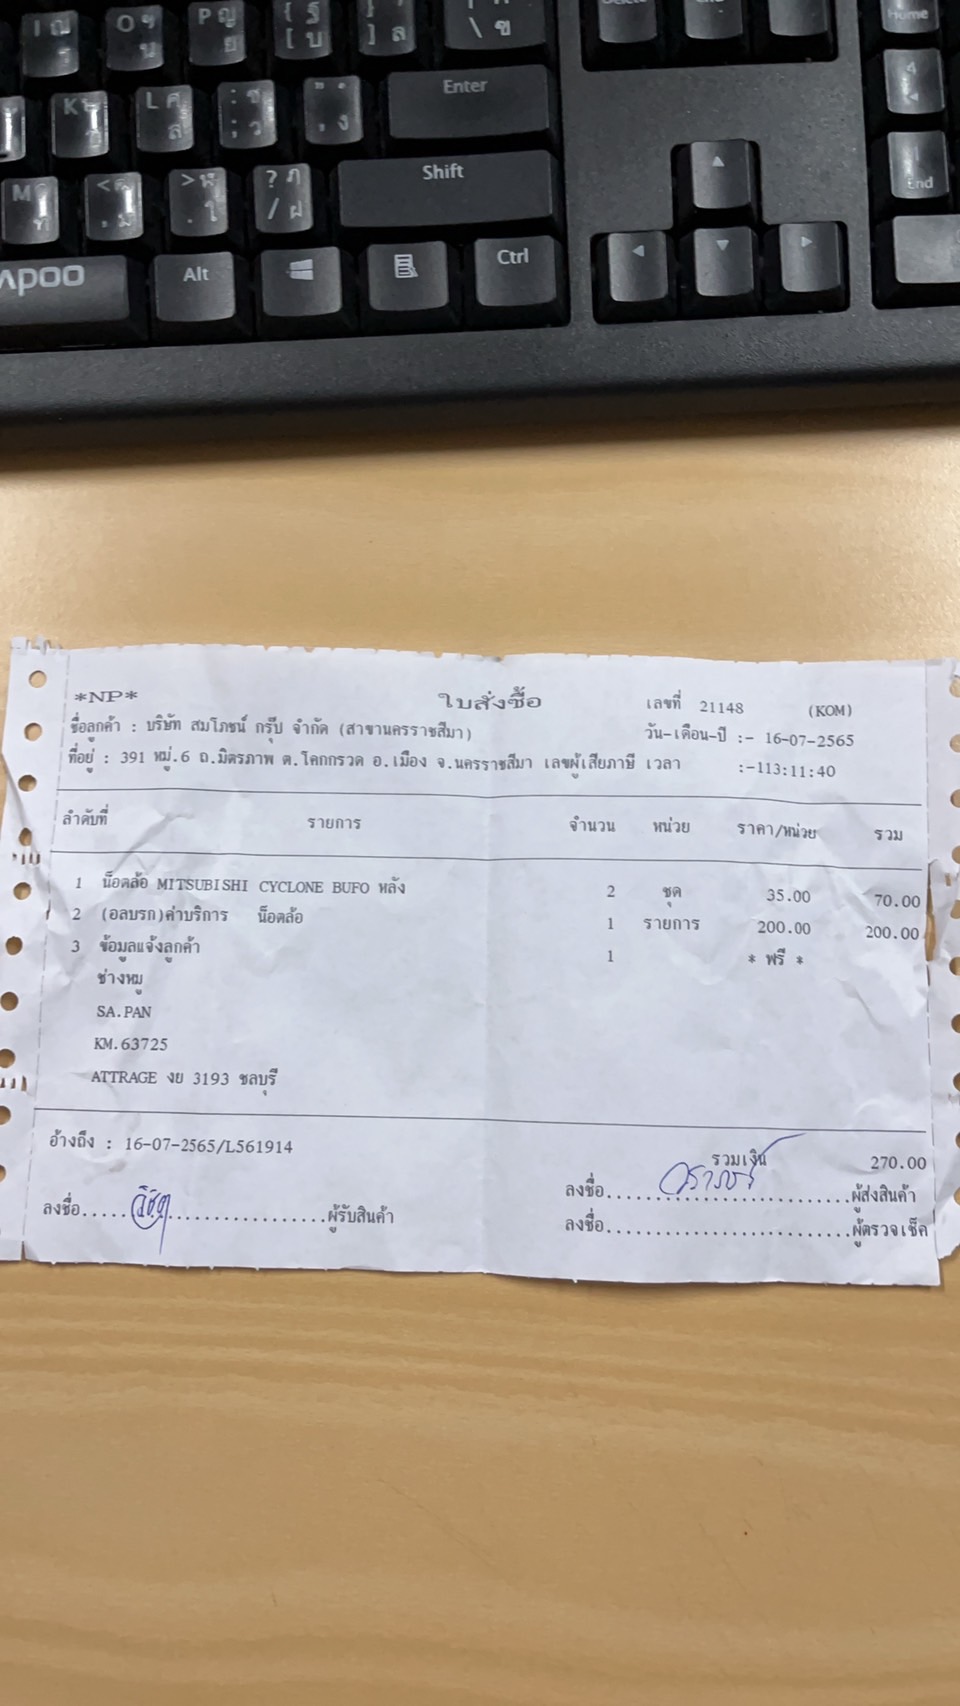 I ญ ร
O ฯ น
P ญ ย
{ ฐ [ บ
] ล
\ ข
Home
K
L ศ ส
: ซ ; ว
" . ' ง
Enter
4
M ท
< , ม
> ฬ . ใ
? ฦ / ฝ
Shift
End
APOO
Alt
Ctrl
*NP*
ใบสั่งซื้อ
เลขที่ 21148 (KOM)
ชื่อลูกค้า : บริษัท สมโภชน์ กรุ๊ป จำกัด (สาขานครราชสีมา)
วัน-เดือน-ปี :- 16-07-2565
ที่อยู่ : 391 หมู่.6 ถ.มิตรภาพ ต.โคกกรวด อ.เมือง จ.นครราชสีมา เลขผู้เสียภาษี เวลา :-113:11:40
ลำดับที่ รายการ จำนวน หน่วย ราคา/หน่วย รวม
1 น็อตล้อ MITSUBISHI CYCLONE BUFO หลัง 2 ชุด 35.00 70.00
2 (อลบรก)ค่าบริการ น็อตล้อ 1 รายการ 200.00 200.00
3 ข้อมูลแจ้งลูกค้า 1 * ฟรี *
ช่างหมู
SA.PAN
KM.63725
ATTRAGE งย 3193 ชลบุรี
อ้างถึง : 16-07-2565/L561914
รวมเงิน 270.00
ลงชื่อ.....................ผู้รับสินค้า
ลงชื่อ..........................ผู้ส่งสินค้า
ลงชื่อ..........................ผู้ตรวจเช็ค